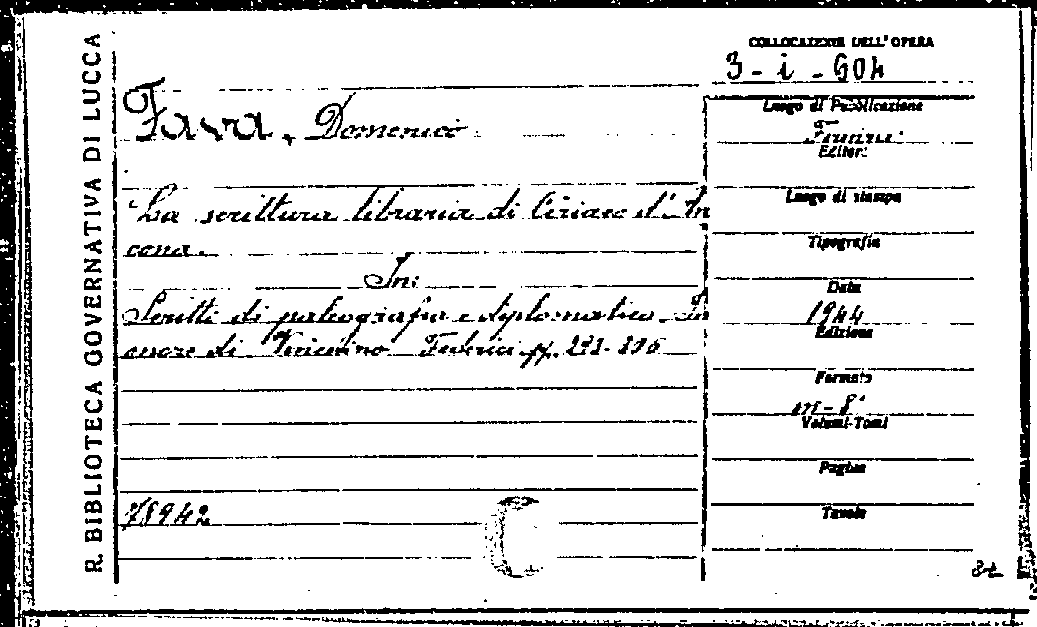 R. BIBLIOTECA GOVERNATIVA DI LUCCA
COLLOCAZIONE DELL'OPERA
3 - i - 604
Fava, Domenico
La scrittura libraria di Ciriaco d'An
cona.
In:
Scritti di paleografia e diplomatica. In
onore di Vincenzo Federici pp.
78942
C
Luogo di Pubblicazione
Firenze
Editore
Luogo di stampa
Tipografia
Data
1944
Edizione
Formato
in-8°
Volumi-Tomi
Pagine
Tavole